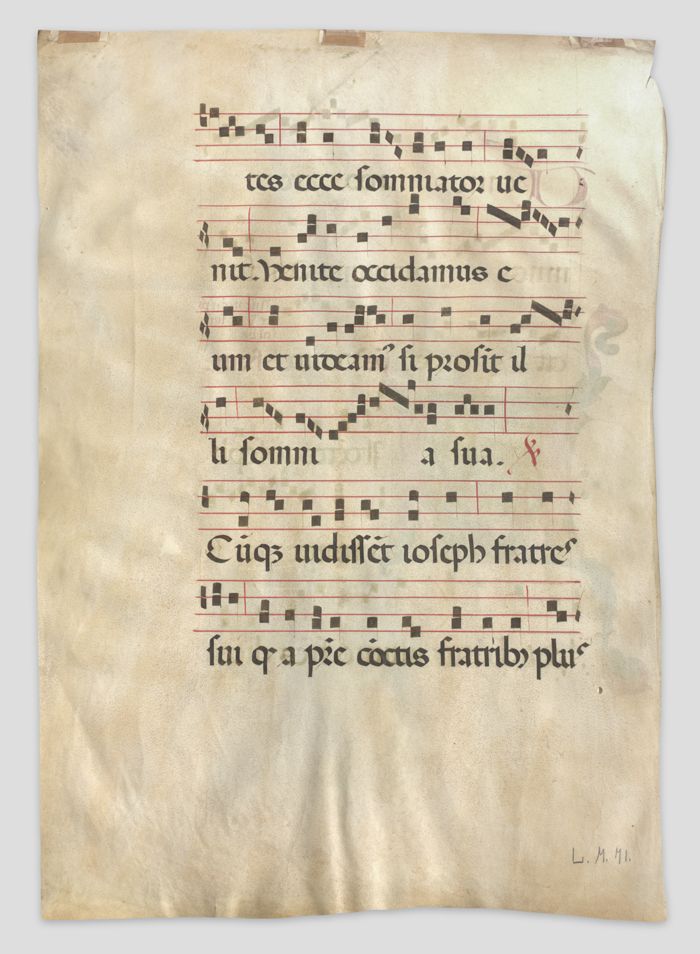 tes ecce somniator ue
nit. Venite occidamus e
um et uideam⁹ si prosit il
li somni a sua. ℣
Cūq3 uidissēt ioseph fratres
sui q a pr̄e cōctis fratrib3 plus
L. M. M1.